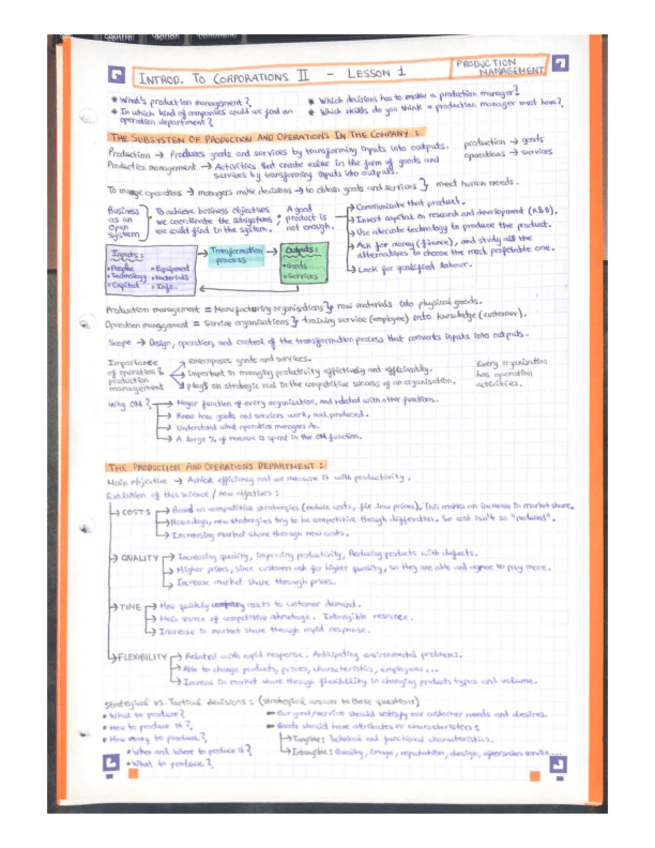 control option command
INTROD. TO CORPORATIONS II - LESSON 1
PRODUCTION
MANAGEMENT
* What's production management?
* In which kind of companies could we find an
operation department?
* Which decisions has to make a production manager?
* Which skills do you think a production manager must have?
THE SUBSYSTEM OF PRODUCTION AND OPERATIONS IN THE COMPANY:
Production → Produces goods and services by transforming inputs into outputs.
Production management → Activities that create value in the form of goods and
services by transforming inputs into outputs.
production → goods
operations → services
To manage operations → managers make decisions → to obtain goods and services } meet human needs.
Business
as an
open
system
To achieve business objectives
we coordinate the subsystems
we could find in the system.
A good
product is
not enough.
→ Communicate that product.
→ Invest capital in research and development (R&D).
→ Use adequate technology to produce the product.
→ Ask for money (finance), and study all the
alternatives to choose the most profitable one.
→ Look for qualified labour.
Inputs:
• People • Equipment
• Technology • Materials
• Capital • Info.
→ Transformation
process →
Outputs:
• Goods
• Services
Production management = Manufacturing organisations } raw materials into physical goods.
Operation management = Service organisations } training service (employee) into knowledge (customer).
Scope → Design, operation, and control of the transformation process that converts inputs into outputs.
Importance
of operation &
production
management
encompasses goods and services.
Important in managing productivity effectively and efficiently.
plays an strategic role in the competitive success of an organisation.
Every organisation
has operation
activities.
Why OM? → Major function of every organisation, and related with other functions.
→ Know how goods and services work, and produced.
→ Understand what operation managers do.
→ A large % of revenue is spent in the OM function.
THE PRODUCTION AND OPERATIONS DEPARTMENT:
Main objective → Achieve efficiency and we measure it with productivity.
Evolution of this science / new objectives:
→ COSTS → Based on competitive strategies (reduce costs, fix low prices). This makes an increase in market share.
→ Nowadays, new strategies try to be competitive though differentiation, so cost isn't so "pursued".
→ Increasing market share through new costs.
→ QUALITY → Increasing quality, improving productivity, Reducing products with defects.
→ Higher prices, since customers ask for higher quality, so they are able and agree to pay more.
→ Increase market share through prices.
→ TIME → How quickly company reacts to customer demand.
→ Main source of competitive advantage. Intangible resource.
→ Increase in market share though rapid response.
→ FLEXIBILITY → Related with rapid response. Anticipating environmental problems.
→ Able to change products, prices, characteristics, employees...
→ Increase in market share through flexibility in changing products types and volume.
Strategical vs. Tactical decisions: (strategical answer to these questions)
• What to produce?
• How to produce it?
• How many to produce?
• When and where to produce it?
• What to produce?
Our good/service should satisfy our customer needs and desires.
Goods should have attributes or characteristics:
→ Tangible: Technical and functional characteristics.
→ Intangible: Quality, image, reputation, design, aftersales service...